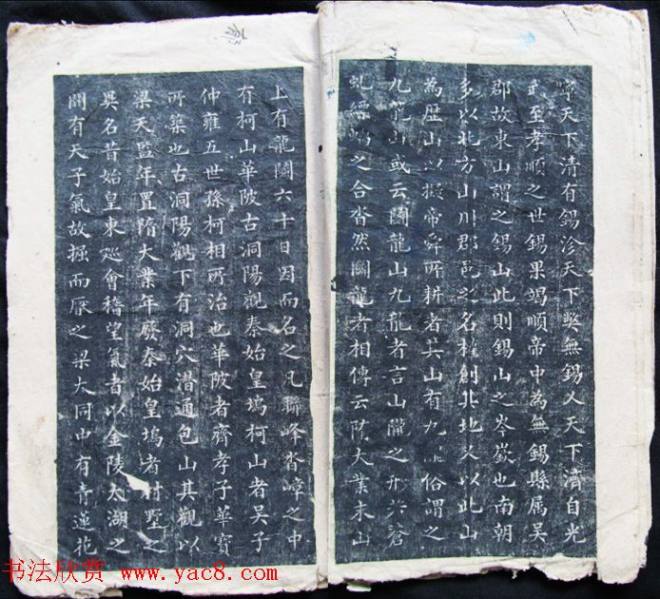 寧天下清有錫沴天下獘無錫乂天下濟自光
武至孝順之世錫果竭順帝中為無錫縣屬吳
郡故東山謂之錫山此則錫山之岑嶔也南朝
多以北方山川郡邑之名權創其地又以此山
為歷山以擬帝舜所耕者其山有九隴俗謂之
九龍山或云鬬龍山九龍者言山隴之形若蒼
虬縹螭之合沓然鬬龍者相傳云隋大業末山
上有龍鬬六十日因而名之凡聯峰沓嶂之中
有柯山華陂古洞陽觀秦始皇塢柯山者吳子
仲雍五世孫柯相所治也華陂者齊孝子華寶
所築也古洞陽觀下有洞穴潛通包山其觀以
梁天監年置隋大業年廢秦始皇塢者村墅之
異名昔始皇東巡會稽望氣者以金陵太湖之
間有天子氣故掘而厭之梁大同中有青蓮花
书法欣赏 www.yac8.com